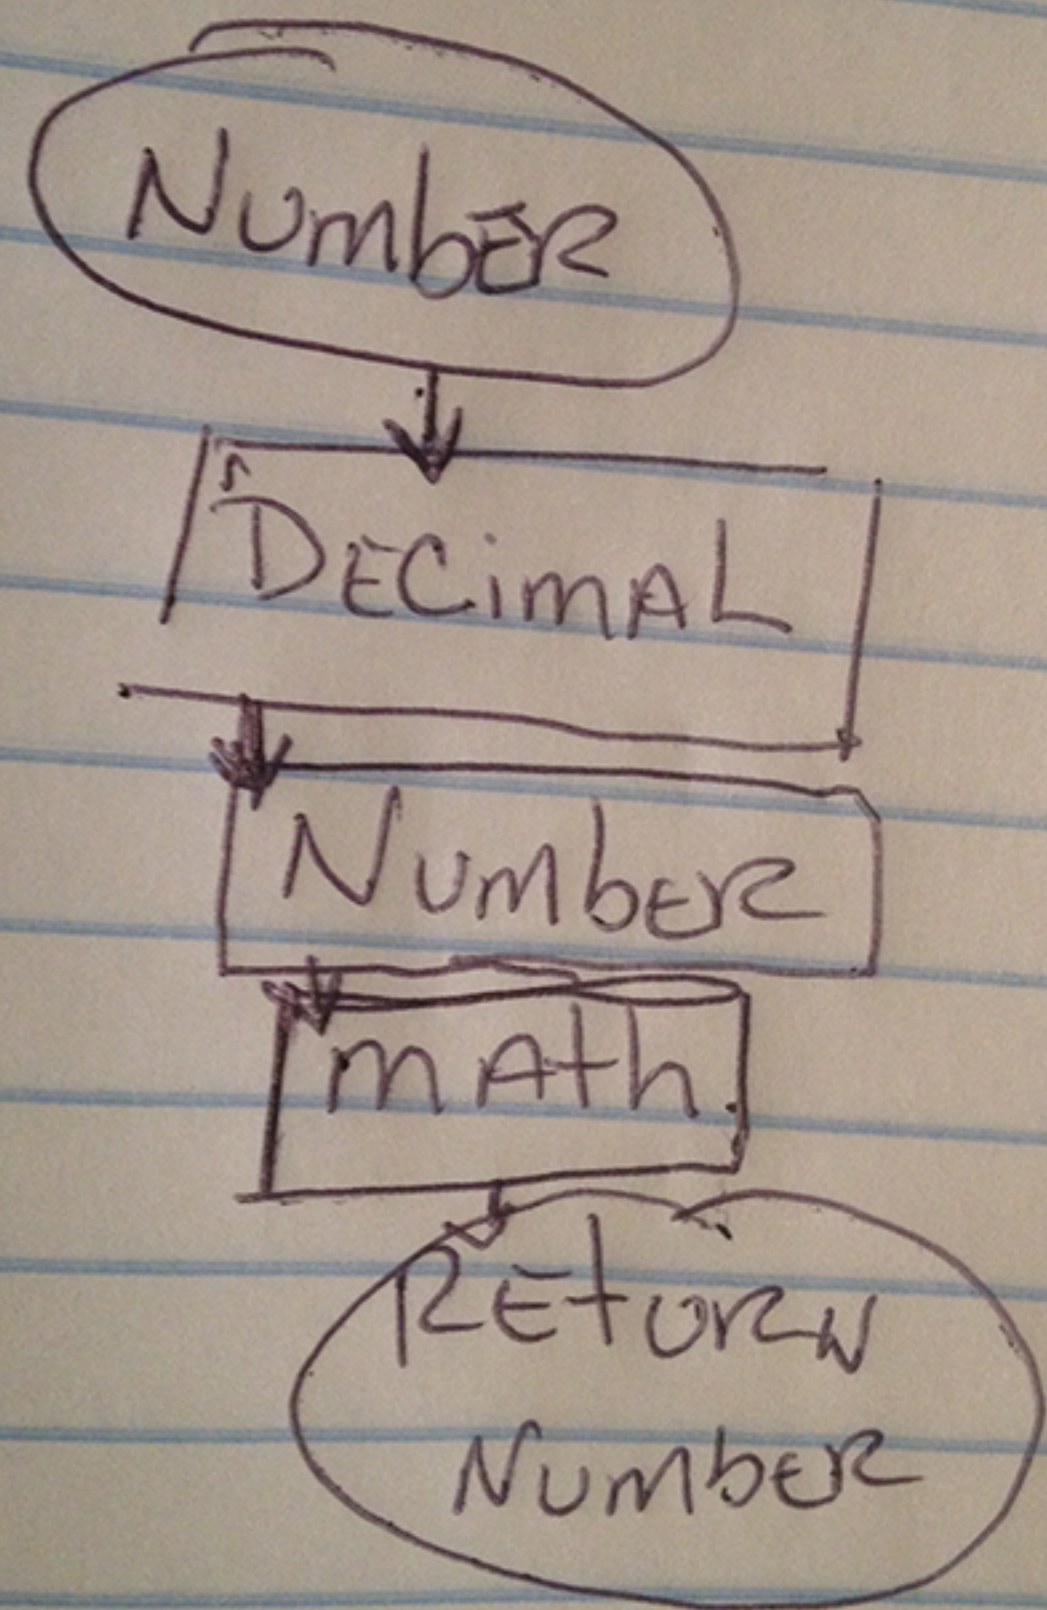 NumbER
DECimAL
NumbER
mAth
REtURN
NumbER